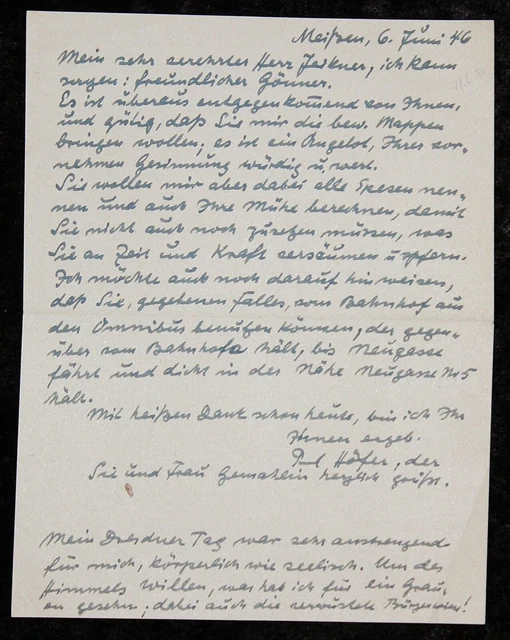 Meißen, 6. Juni 46
Mein sehr verehrter Herr Zeikner, ich kann
sagen: freundlicher Gönner.
Es ist überaus entgegenkommend von Ihnen,
und gütig, daß Sie mir die bew. Mappen
bringen wollen; es ist ein Angebot, Ihrer vor-
nehmen Gesinnung würdig u. wert.
Sie wollen mir aber dabei alle Spesen nen-
nen und auch Ihre Mühe berechnen, damit
Sie nicht auch noch zusetzen müssen, was
Sie an Zeit und Kraft versäumen u opfern.
Ich möchte auch noch darauf hinweisen,
daß Sie, gegebenen Falles, vom Bahnhof aus
den Omnibus benutzen können, der gegen-
über vom Bahnhofe hält, bis Neugasse
fährt und dicht in der Nähe Neugasse Nr 5
hält.
Mit heißem Dank schon heute, bin ich Ihr
Ihnen ergeb.
Höfer, der
Sie und Frau Gemahlin herzlich grüßt.
Mein Dresdner Tag war sehr anstrengend
für mich, körperlich wie seelisch. Um des
Himmels Willen, was hab ich für ein Grau-
en gesehn; dabei auch die verwüstete Bürgerwiese!